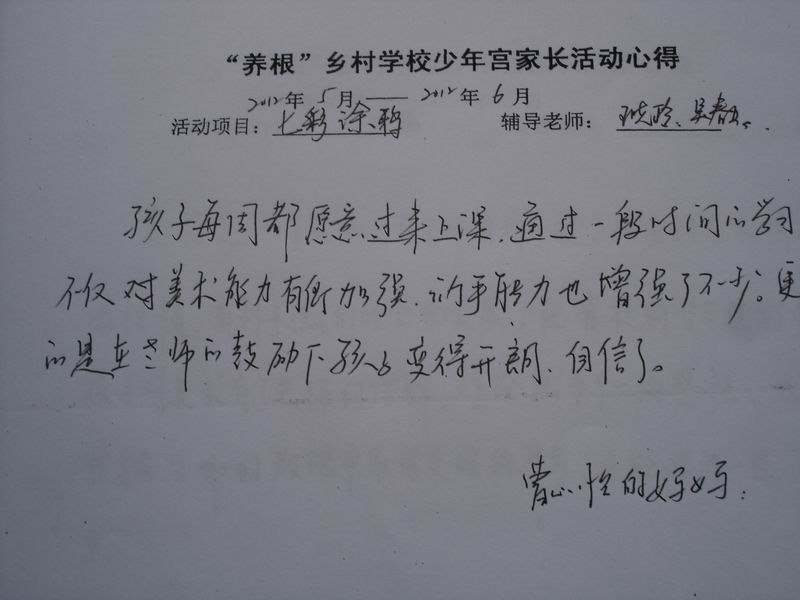 “养根”乡村学校少年宫家长活动心得
2012年 5月 —— 2012年 6月
活动项目：七彩涂鸦 辅导老师： 玲、吴春
孩子每周都愿意过来上课，通过一段时间的学习
不仅对美术能力有所加强，动手能力也增强了不少。更
的是在老师的鼓励下孩子变得开朗、自信了。
心怡的妈妈